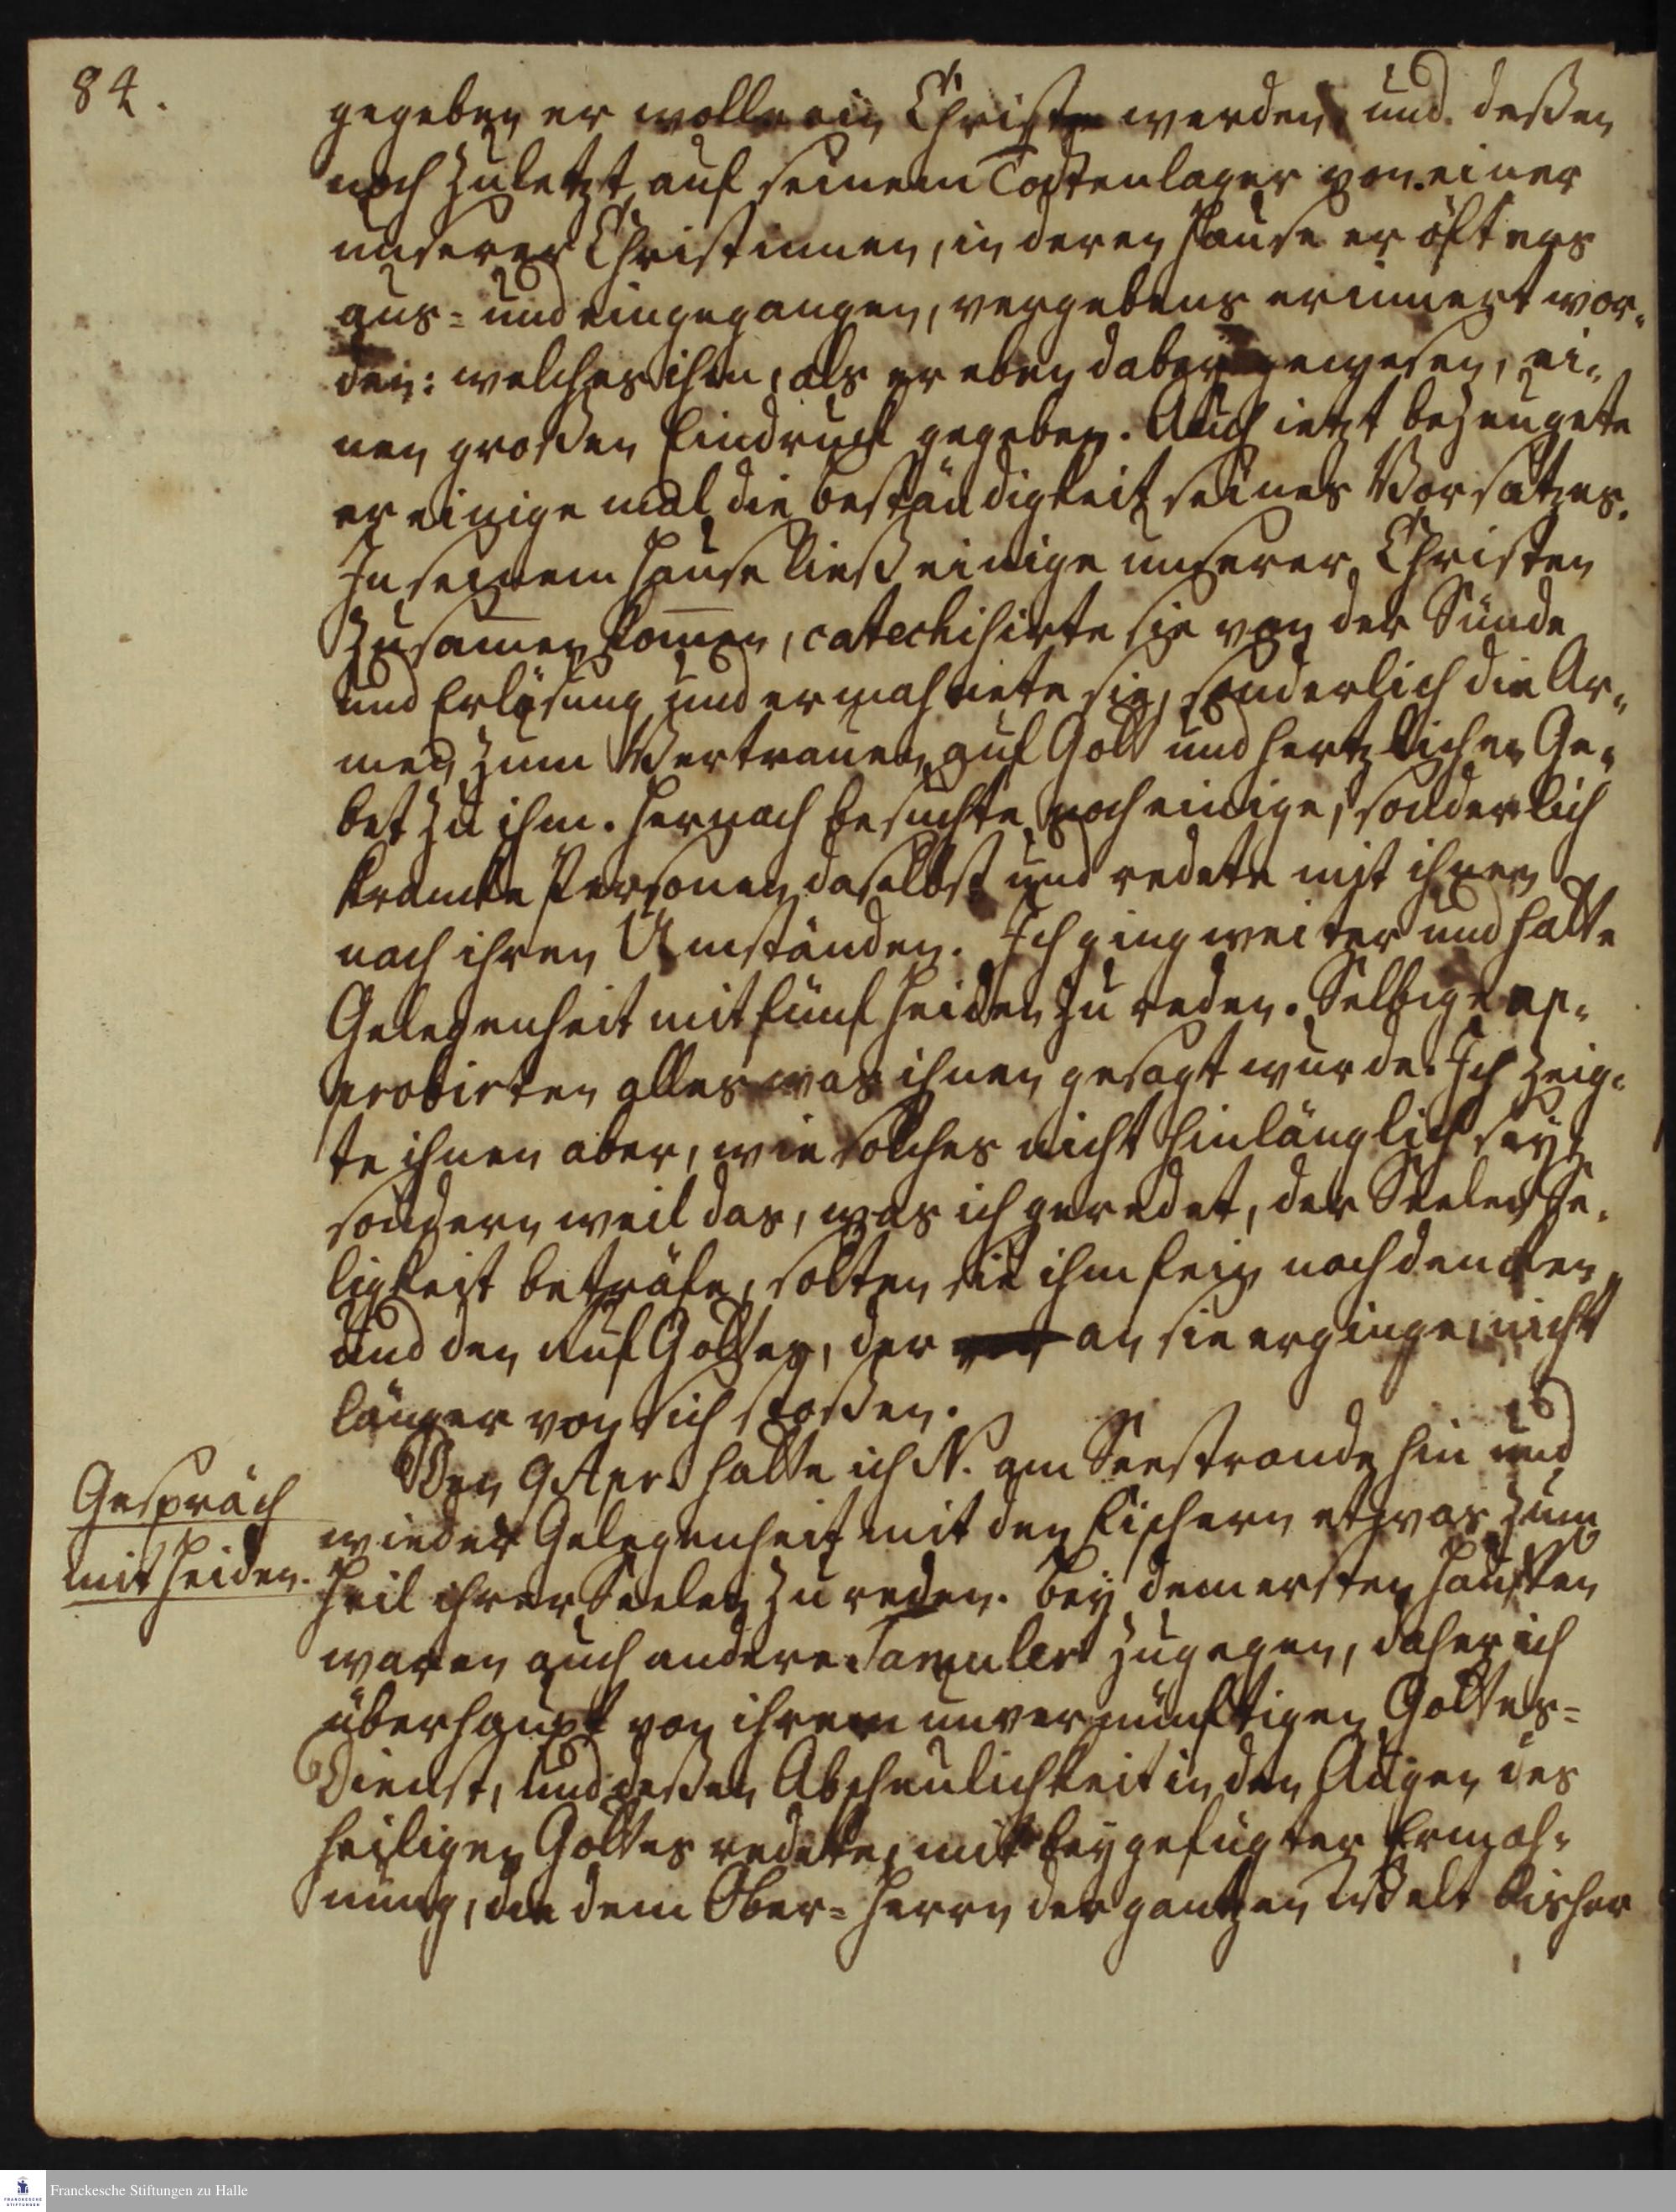 84.
gegeben er wolle ein Christ werden, und deßen
noch zuletzt auf seinem Todtenlager von einer
unserer Christinnen, in deren Hause er öfters
aus- und eingegangen, vergebens erinnert wor-
den: welches ihm, als er eben dabey gewesen, ei-
nen großen Eindruck gegeben. Auch ietzt bezeugete
er einige mal die Beständigkeit seines Vorsatzes.
In seinem Hause ließ einige unserer Christen
zusam̄en kom̄en, catechisirte sie von der Sünde
und Erlösung und ermahnete sie, sonderlich die Ar-
men zum Vertrauen auf Gott und hertzlichen Ge-
bet zu ihm. Hernach besuchte noch einige, sonderlich
krancke Personen daselbst und redete mit ihnen
nach ihren Umständen. Ich ging weiter und hatte
Gelegenheit mit fünf Heiden zu reden. Selbige ap-
probirten alles was ihnen gesagt wurde. Ich zeig-
te ihnen aber, wie solches nicht hinlänglich sey,
sondern weil das, was ich geredet, der Seelen Se-
ligkeit beträfe, solten sie ihm fein nachdencken,
und den Ruf Gottes, der an sie erginge, nicht
länger von sich stoßen.
Den 9 Apr. hatte ich N. am Seestrande hin und
wieder Gelegenheit mit den Fischern etwas zum
Heil ihrer Seelen zu reden. Bey dem ersten Hauffen
waren auch andere Tamuler zugegen, daher ich
überhaupt von ihrem unvernünftigen Gottes-
Dienst, und deßen Abscheulichkeit in den Augen des
heiligen Gottes redete, mit beygefügter Ermah-
nung, die dem Ober-Herrn der gantzen Welt bisher
Gespräch
mit Heiden.
Franckesche Stiftungen zu Halle
FRANCKESCHE
STIFTUNGEN